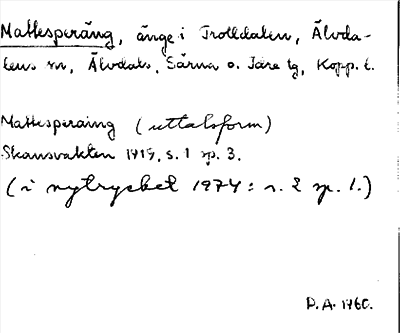 Mattesperäng, änge i Trolldalen, Älvda-
lens sn, Älvdals, Särna o. Idre tg, Kopp. l.
Mattesperäing (uttalsform)
Skansvakten 1919, s. 1 sp. 3.
(i nytrycket 1974: s. 2 sp. 1.)
D.A. 1960.